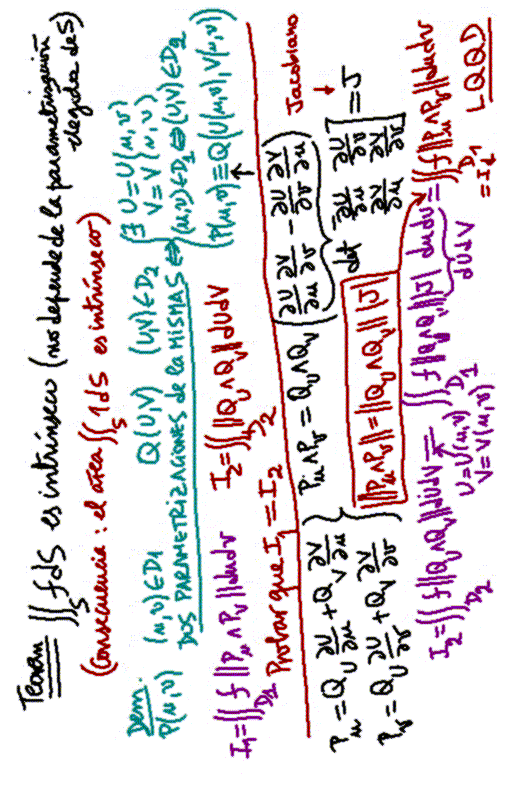 Teorem ∬_S f dS es intrínseco (no depende de la parametrización elegida de S)
(Consecuencia: el área ∬_S 1 dS es intrínseco)
Dem.
P(u,v) (u,v)∈D1 Q(U,V) (U,V)∈D2
DOS PARAMETRIZACIONES de la MISMA S ⇔ { ∃ U=U(u,v) V=V(u,v)
(u,v)∈D1 ⇔ (U,V)∈D2
(P(u,v) ≡ Q(U(u,v), V(u,v))
I1=∬_D1 f ||Pu∧Pv|| du dv I2=∬_D2 f ||QU∧QV|| dU dV
Probar que I1 = I2
Pu = QU ∂U/∂u + QV ∂V/∂u
Pv = QU ∂U/∂v + QV ∂V/∂v
} Pu∧Pv = QU∧QV (∂U/∂u ∂V/∂v − ∂U/∂v ∂V/∂u)
Jacobiano
det [∂U/∂u ∂U/∂v
∂V/∂u ∂V/∂v] = J
||Pu∧Pv|| = ||QU∧QV|| |J|
I2=∬_D2 f ||QU∧QV|| dU dV = ∬_D1 f ||QU∧QV|| |J| du dv = ∬_D1 f ||Pu∧Pv|| du dv
U=U(u,v)
V=V(u,v)
dU dV
= I1
LQQD